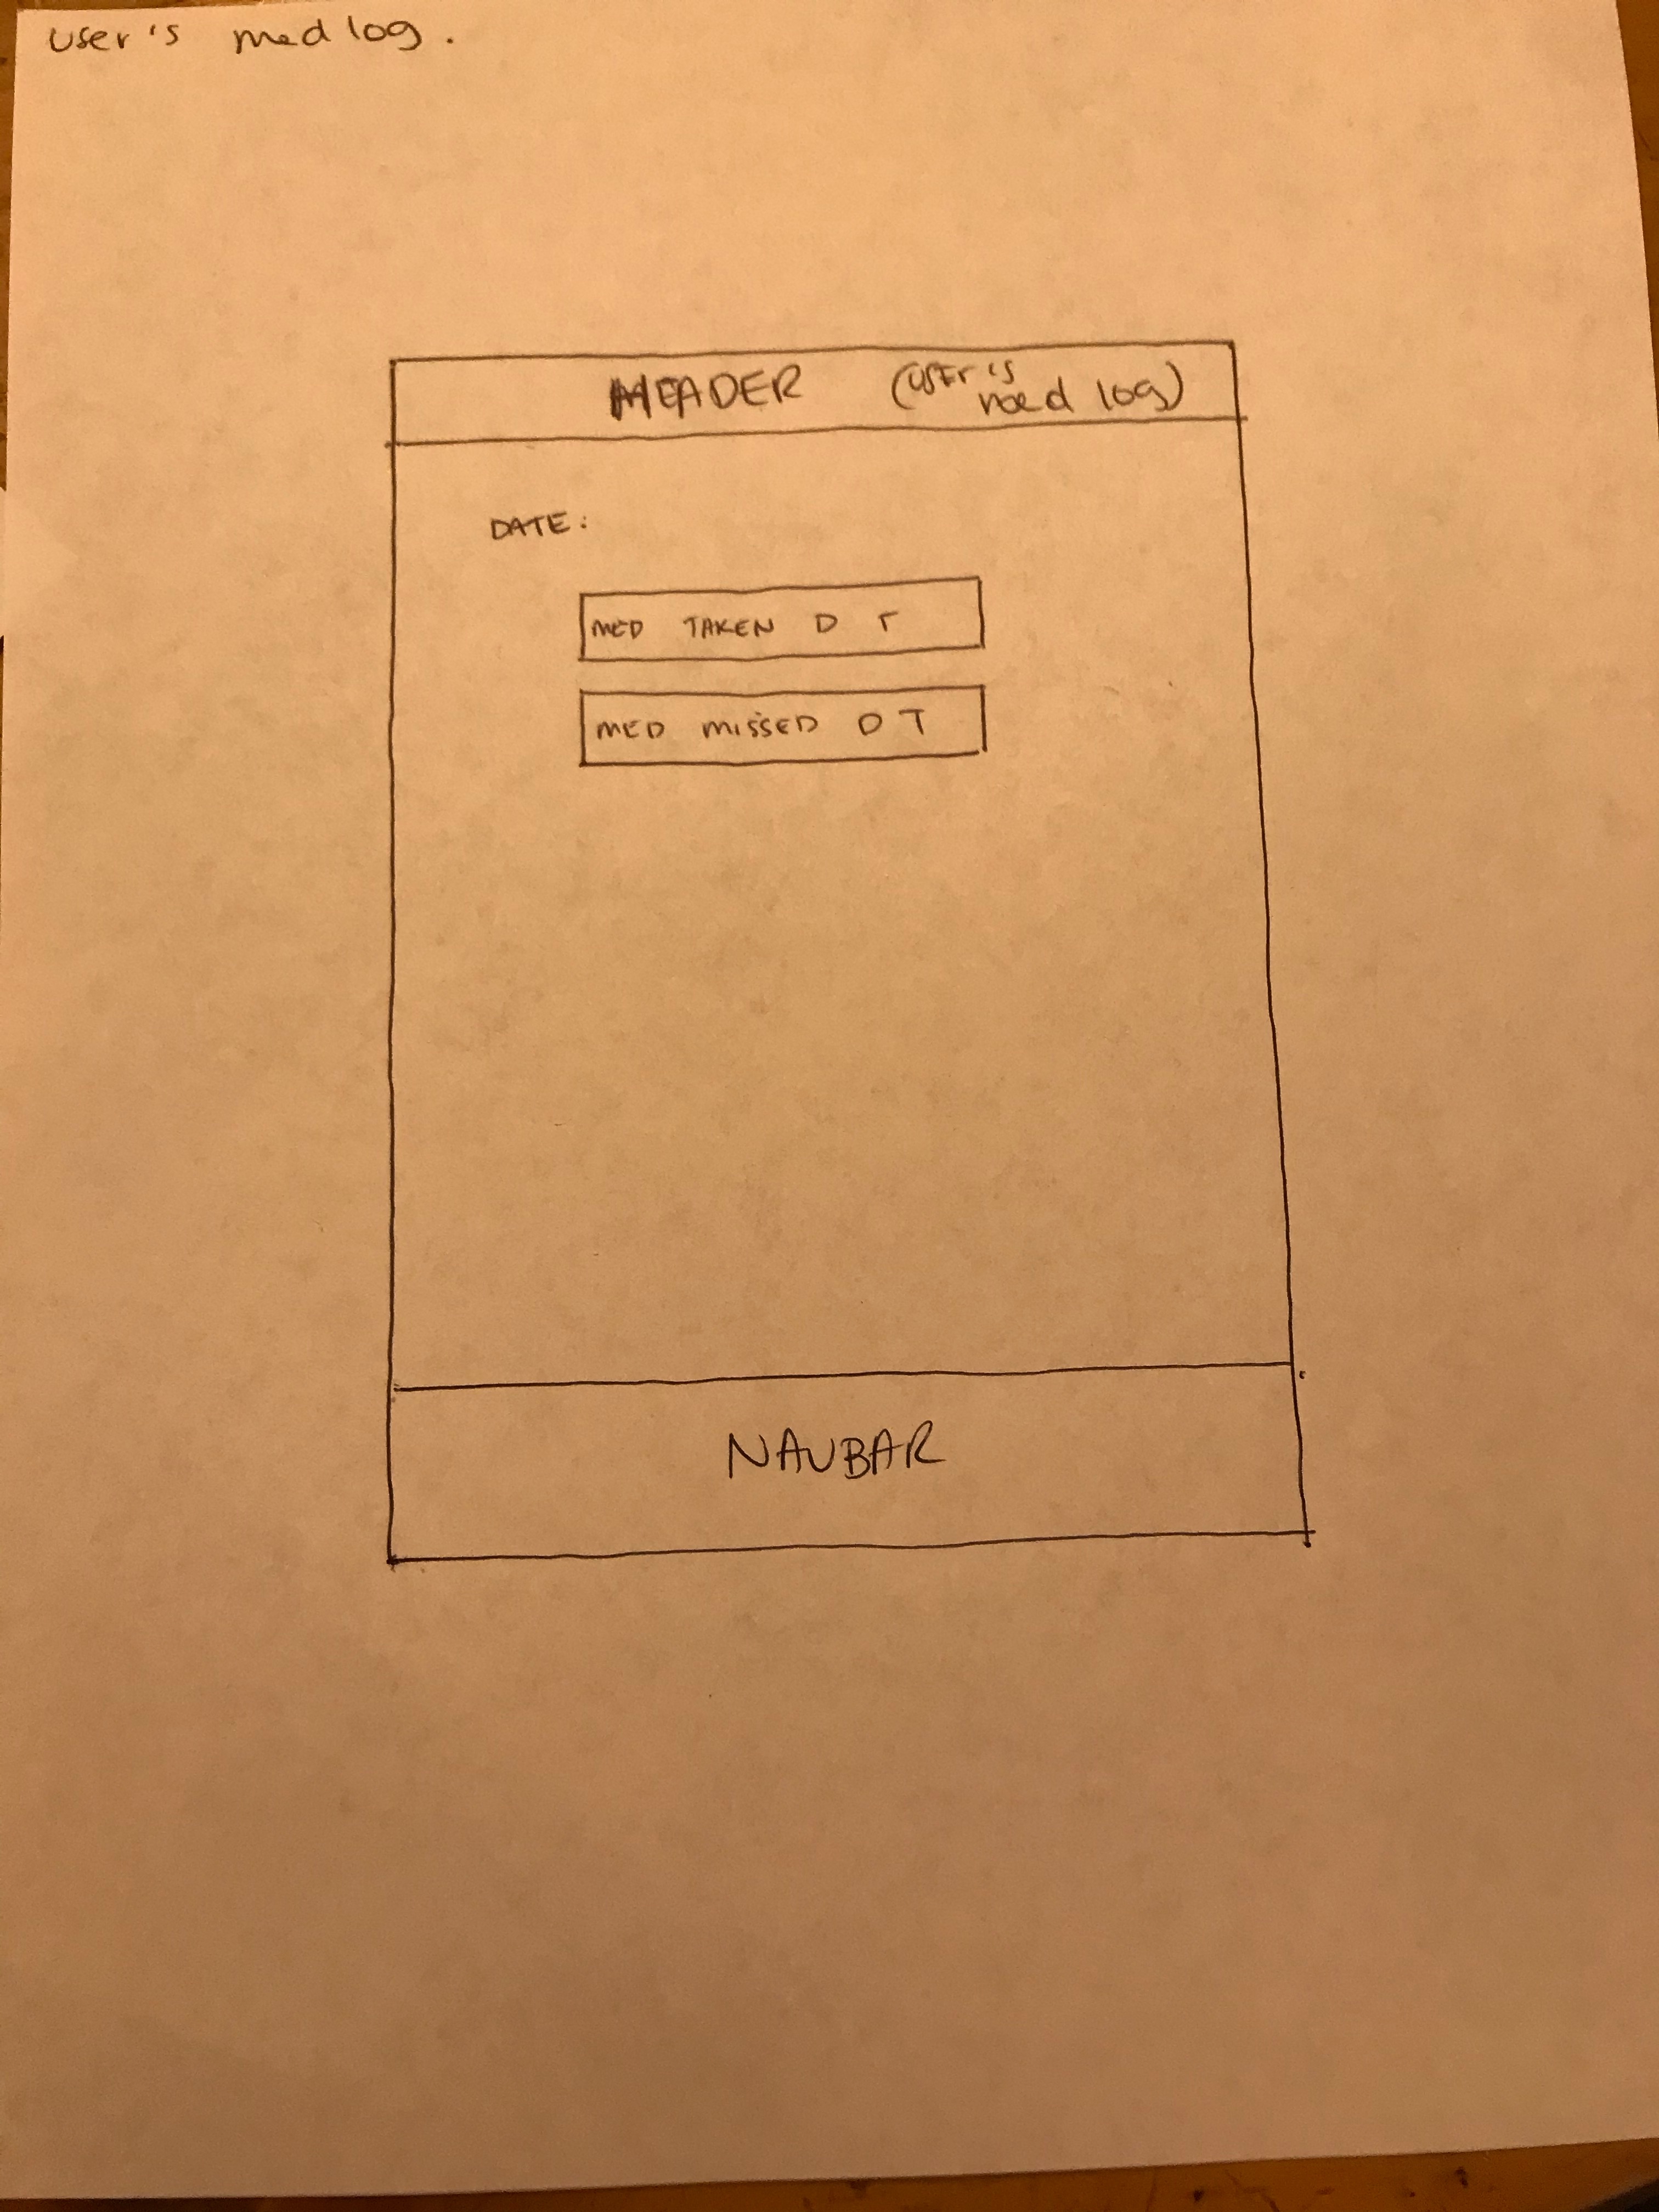 user's med log.
HEADER (user's
med log)
DATE:
MED TAKEN D T
MED MISSED D T
NAVBAR